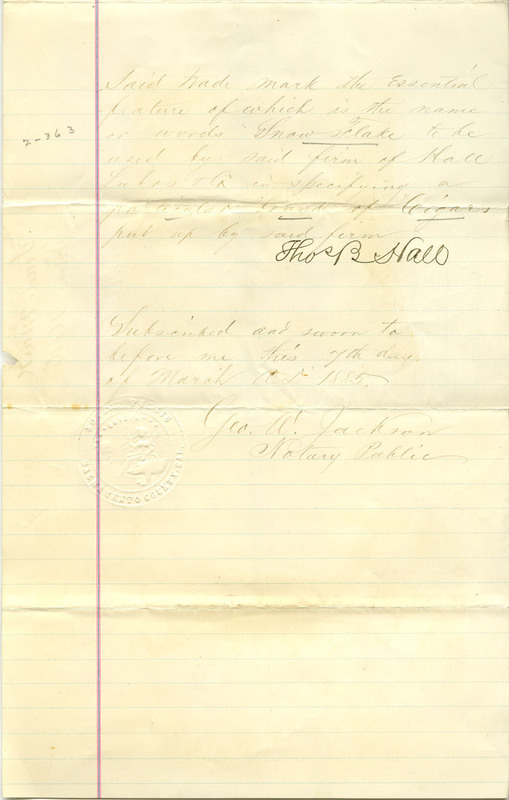 Said trade mark the Essential
feature of which is the name
or words "Snow Flake" to be
used by said firm of Hall
Luhrs & Co in specifying a
particular brand of Cigars
put up by said firm
2-363
Thos B Hall
Subscribed and sworn to
before me this 7th day
of March A.D. 1885.
Geo. A. Jackson
Notary Public
SACRAMENTO COUNTY, CAL.